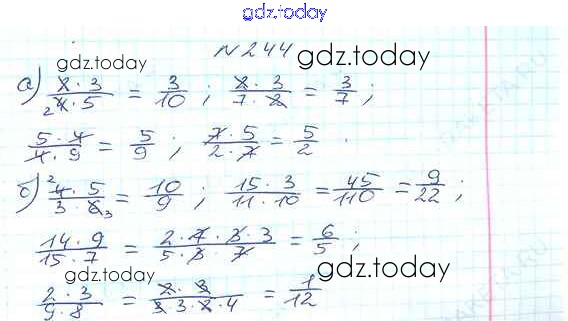 gdz.today
N 244
gdz.today gdz.today
а) 2·3/4·5 = 3/10 ; 2·3/7·2 = 3/7 ;
5·4/4·9 = 5/9 ; 7·5/2·7 = 5/2
б) 4·5/3·6 = 10/9 ; 15·3/11·10 = 45/110 = 9/22 ;
14·9/15·7 = 2·7·3·3/5·3·7 = 6/5 ;
gdz.today gdz.today
2·3/9·8 = 2·3/3·3·2·4 = 1/12